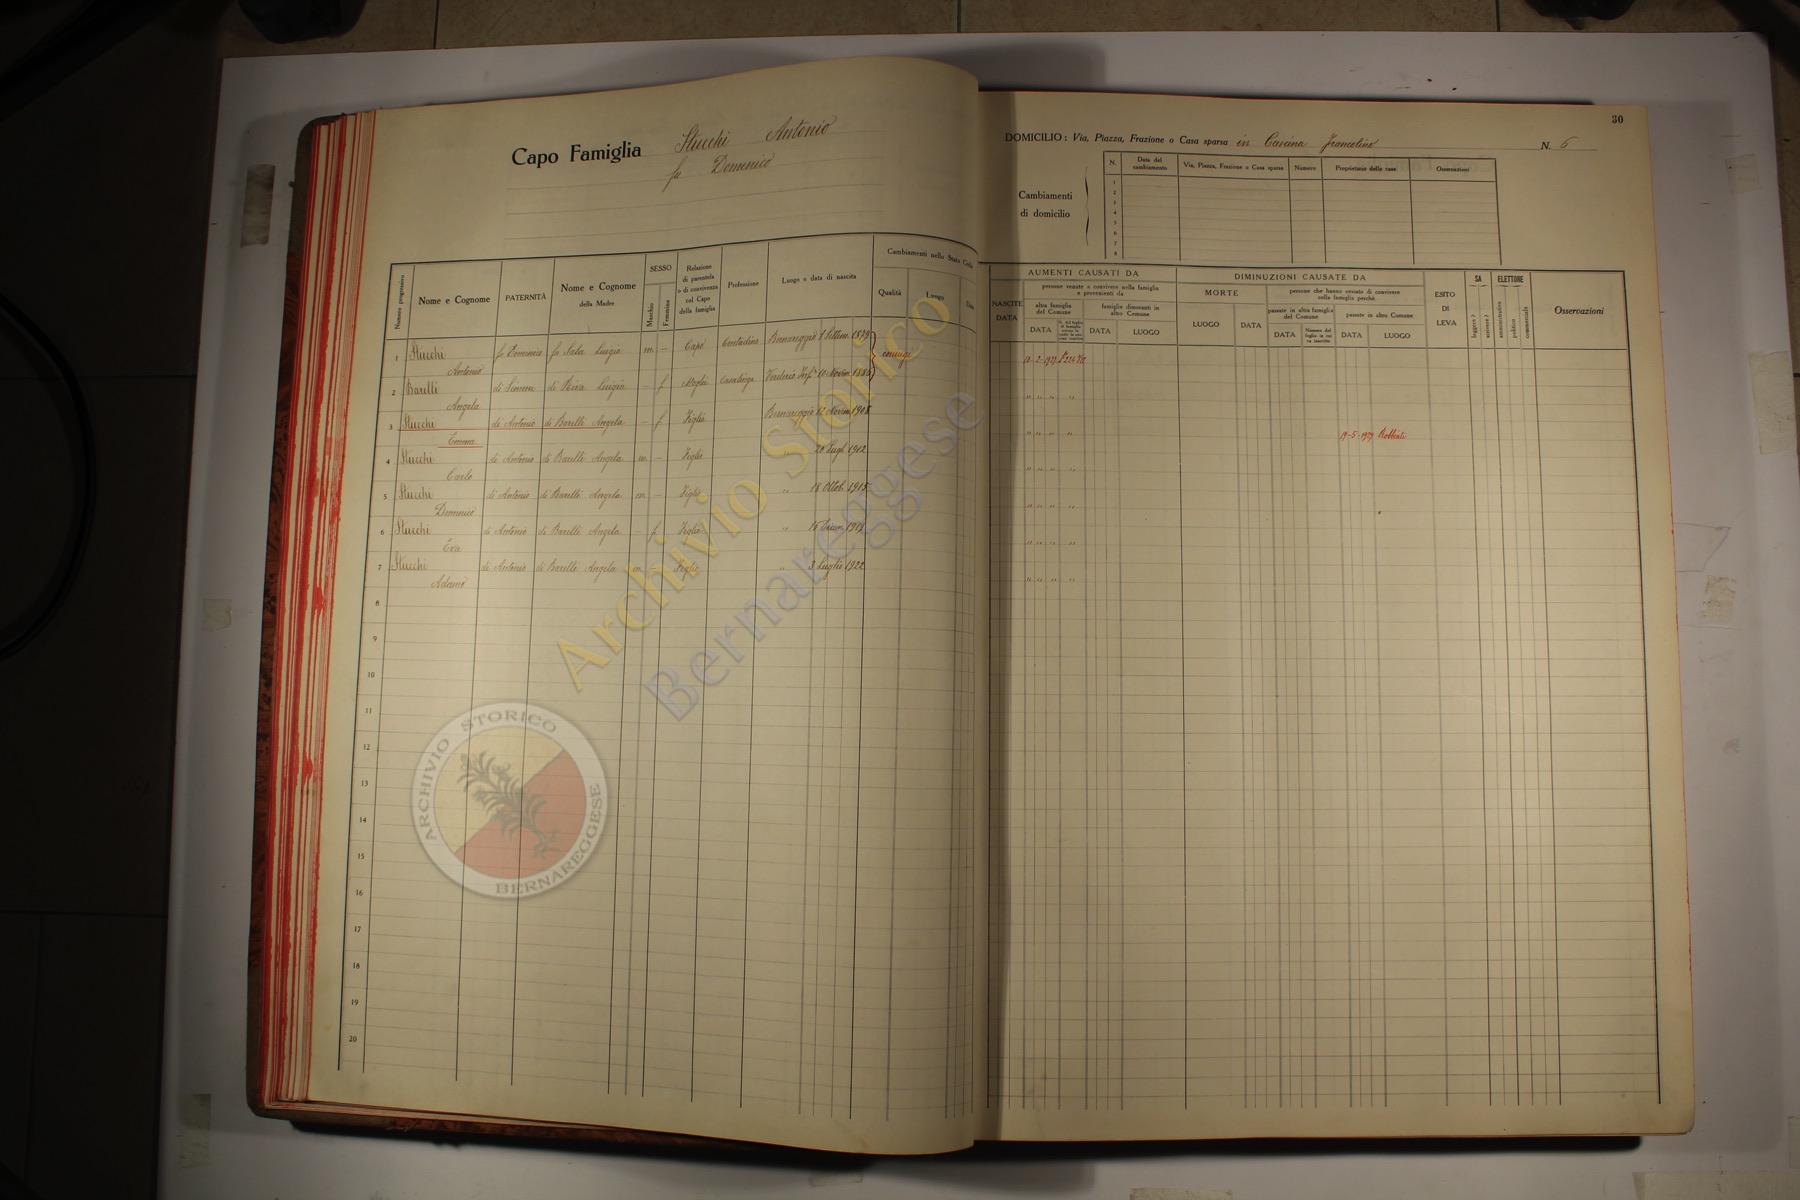 30
Capo Famiglia Stucchi Antonio
fu Domenico
DOMICILIO : Via, Piazza, Frazione o Casa sparsa in Cascina Francolino N. 6
Cambiamenti
di domicilio
N. Data del cambiamento Via, Piazza, Frazione o Casa sparsa Numero Proprietario della casa Osservazioni
1
2
3
4
5
6
7
8
Numero progressivo
Nome e Cognome
PATERNITÀ
Nome e Cognome
della Madre
SESSO
Maschio
Femmina
Relazione
di parentela
o di convivenza
col Capo
della famiglia
Professione
Luogo e data di nascita
Cambiamenti nello Stato Civile
Qualità
Luogo
Data
NASCITE
DATA
AUMENTI CAUSATI DA
persone venute a convivere nella famiglia
e provenienti da
altra famiglia
del Comune
DATA
famiglie dimoranti in
altro Comune
DATA
LUOGO
DIMINUZIONI CAUSATE DA
MORTE
LUOGO
DATA
persone che hanno cessato di convivere
colla famiglia perchè
passate in altra famiglia
del Comune
DATA
Numero del
foglio in cui
va inscritto
passate in altro Comune
DATA
LUOGO
ESITO
DI
LEVA
SA
leggere ?
scrivere ?
ELETTORE
amministrativo
politico
commerciale
Osservazioni
1 Stucchi Antonio fu Domenico fu Sala Luigia m — Capo Contadino Bernareggio 8 Settem. 1879 coniugi 12-2-1927
2 Barelli Angela di Simone di Riva Luigia — f Moglie Casalinga Verderio Inf. 10 Novem 1880 " " " "
3 Stucchi Emma di Antonio di Barelli Angela — f Figlia Bernareggio 12 Novem 1908 " " " " 19-5-1929 Robbiate
4 Stucchi Carlo di Antonio di Barelli Angela m — Figlio " 20 Lugl. 1912 " " " "
5 Stucchi Domenico di Antonio di Barelli Angela m — Figlio " 18 Ottob. 1915 " " " "
6 Stucchi Eva di Antonio di Barelli Angela — f Figlia " 16 Dicem. 1919 " " " "
7 Stucchi Adamo di Antonio di Barelli Angela m — Figlio " 3 Luglio 1922 " " " "
8
9
10
11
12
13
14
15
16
17
18
19
20
Archivio Storico
Bernareggese
ARCHIVIO STORICO
BERNAREGGESE